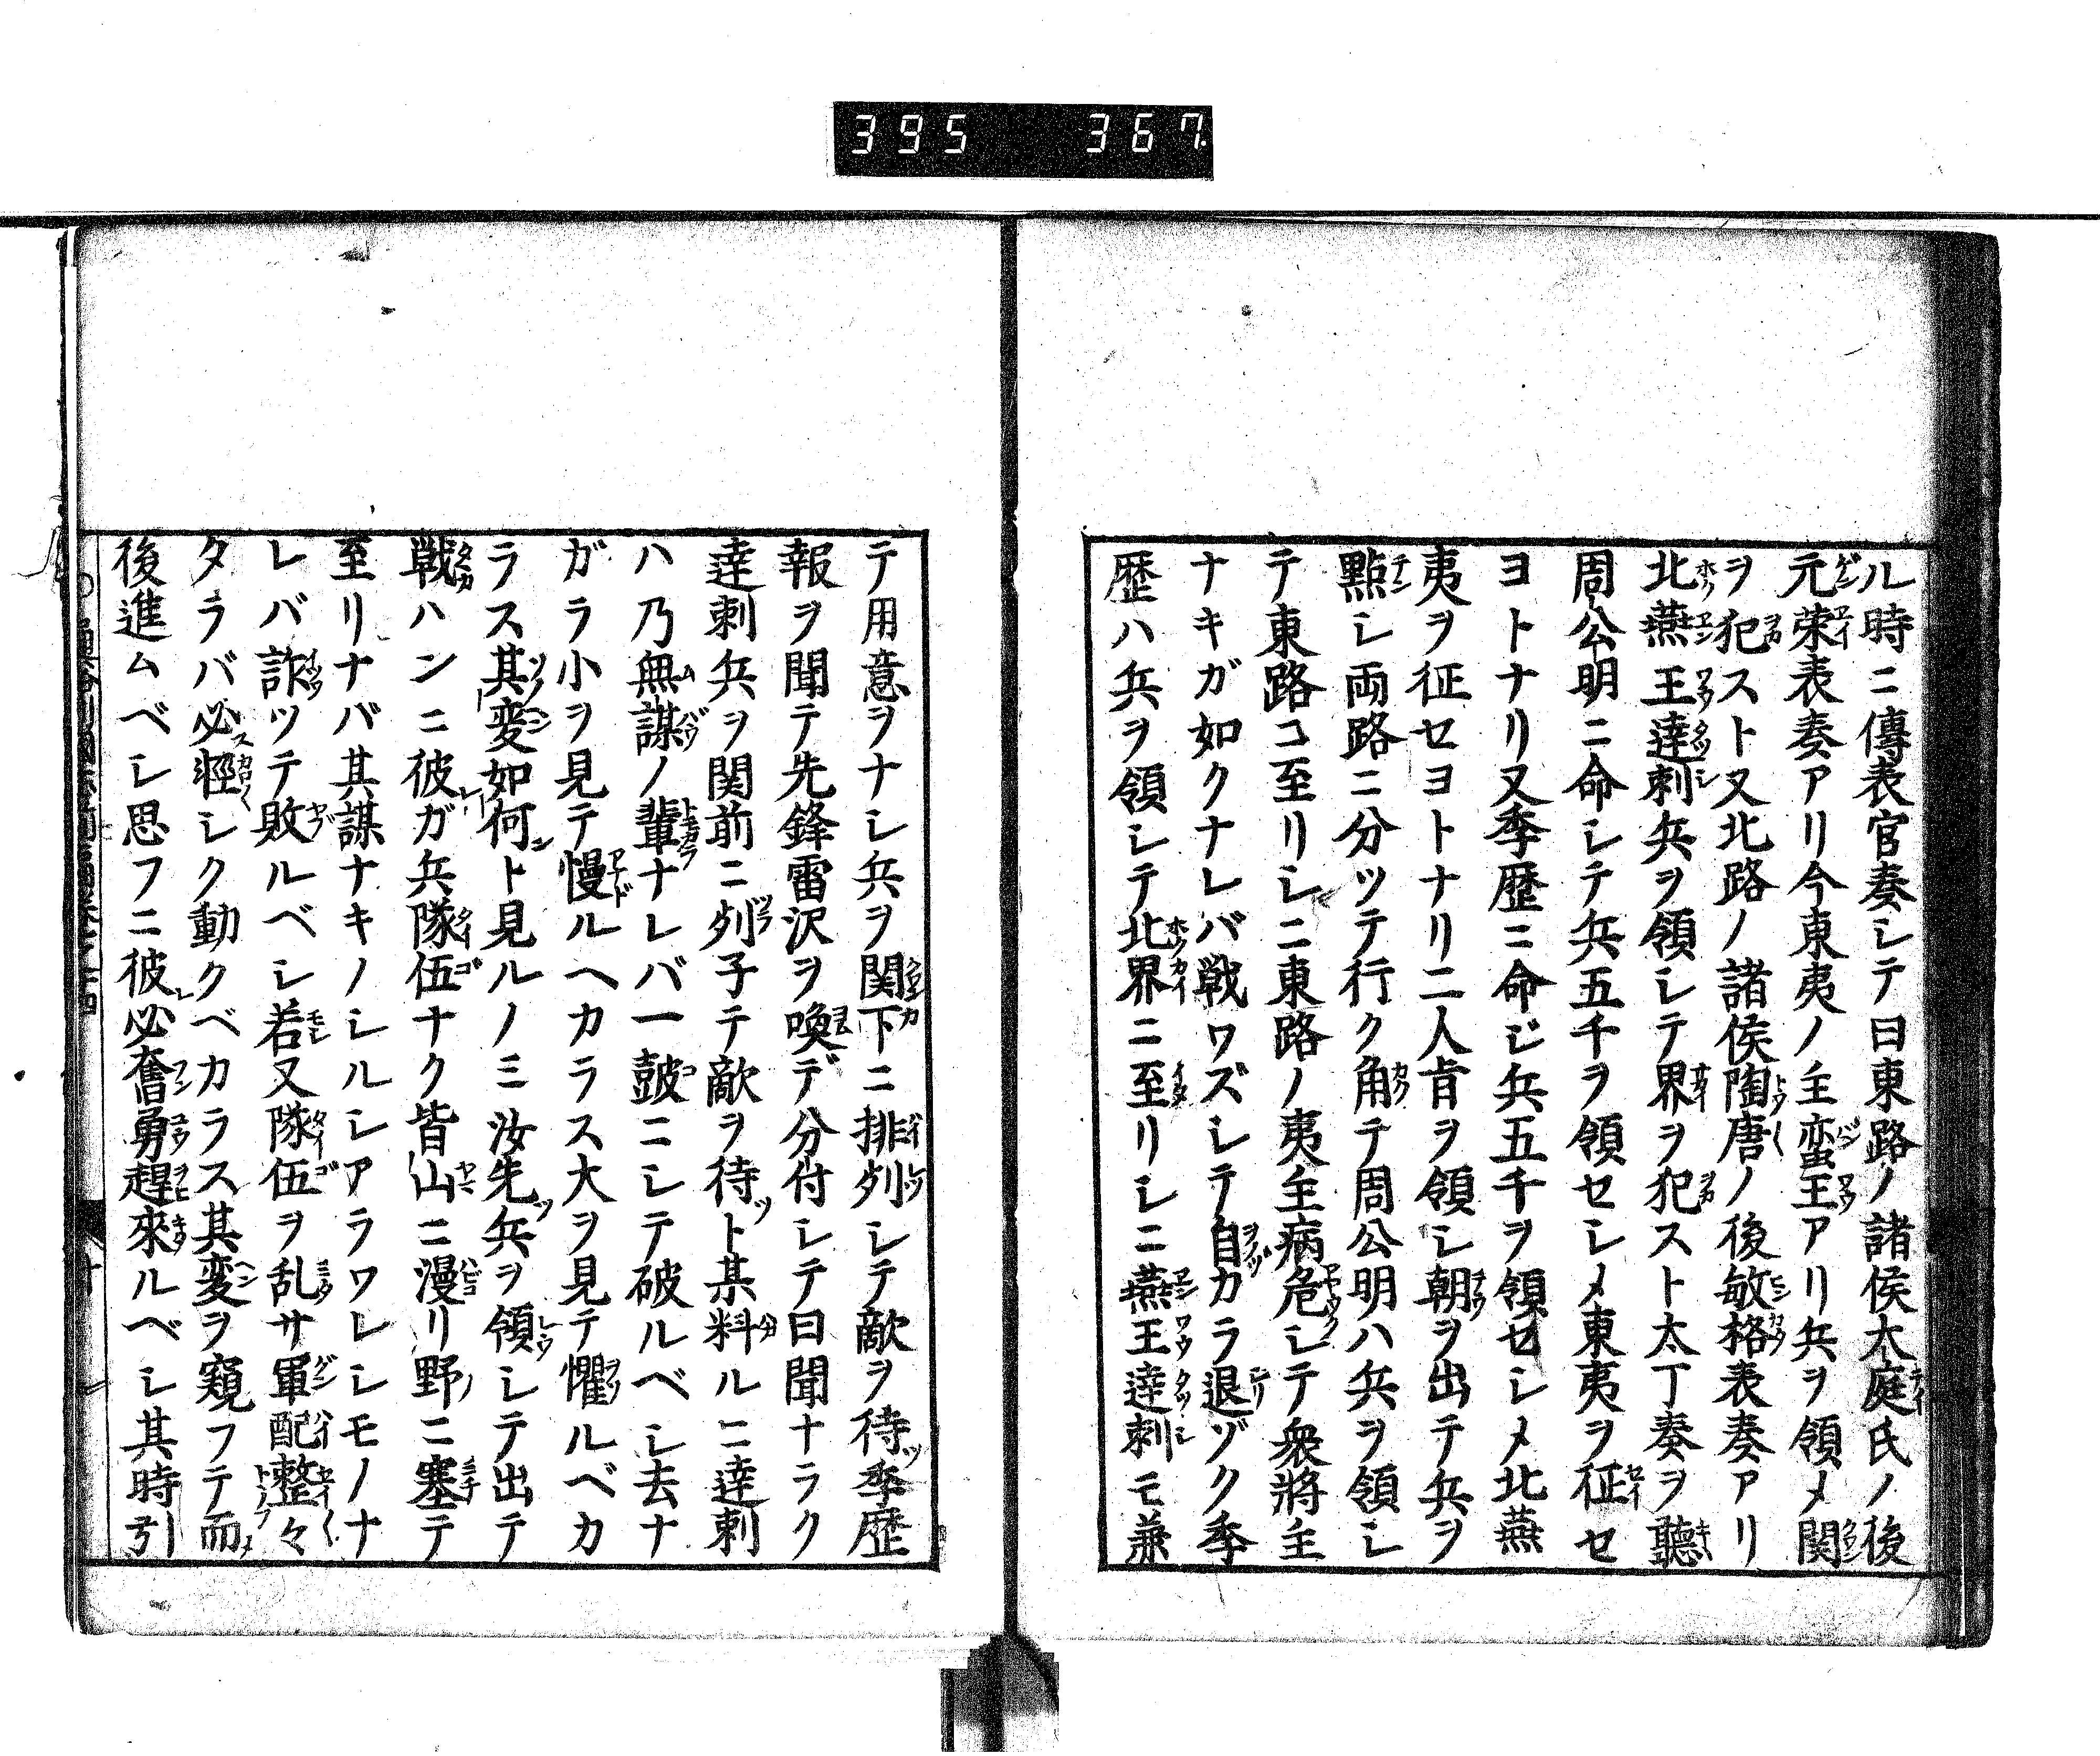 395 367
ル時ニ傳表官奏シテ曰東路ノ諸侯大庭氏ノ後
元榮表奏アリ今東夷ノ主蛮王アリ兵ヲ領メ関
ヲ犯スト又北路ノ諸侯陶唐ノ後敏格表奏アリ
北燕王達刺兵ヲ領シテ界ヲ犯スト太丁奏ヲ聽
周公明ニ命シテ兵五千ヲ領セシメ東夷ヲ征セ
ヨトナリ又季歴ニ命ジ兵五千ヲ領セシメ北燕
夷ヲ征セヨトナリ二人肯ヲ領シ朝ヲ出テ兵ヲ
點シ両路ニ分ツテ行ク角テ周公明ハ兵ヲ領シ
テ東路コ至リシニ東路ノ夷主病危シテ衆將主
ナキガ如クナレバ戦ワズシテ自カラ退ゾク季
歴ハ兵ヲ領シテ北界ニ至リシニ燕王達刺モ兼
テ用意ヲナシ兵ヲ関下ニ排列シテ敵ヲ待季歴
報ヲ聞テ先鋒雷沢ヲ喚デ分付シテ曰聞ナラク
達刺兵ヲ関前ニ列子テ敵ヲ待ト某料ルニ達刺
ハ乃無謀ノ輩ナレバ一鼓ニシテ破ルベシ去ナ
ガラ小ヲ見テ慢ルヘカラス大ヲ見テ懼ルベカ
ラス其変如何ト見ルノミ汝先兵ヲ領シテ出テ
戦ハンニ彼ガ兵隊伍ナク皆山ニ漫リ野ニ塞テ
至リナバ其謀ナキノシルシアラワレシモノナ
レバ詐ツテ敗ルベシ若又隊伍ヲ乱サ軍配整々
タラバ必軽シク動クベカラス其変ヲ窺フテ而
後進ムベシ思フニ彼必奮勇趕來ルベシ其時引